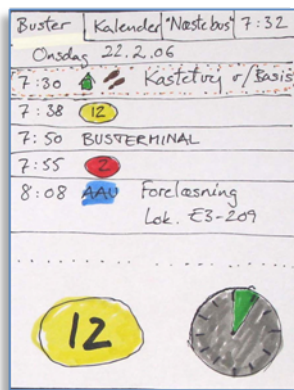 Buster Kalender "Næste bus" 7:32
Onsdag 22.2.06
7:30 Kastetvej v/Basis
7:38 12
7:50 BUSTERMINAL
7:55 2
8:08 AAU Forelæsning
Lok. E3-209
12